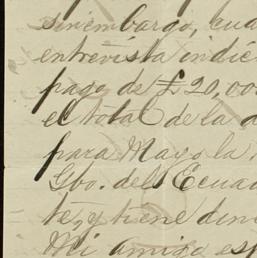 sin embargo, cua
entrevista indic
pago de £20,00
el total de la d
para Mayo la
Gbo. del Ecua
te, y tiene din
Mi amigo esp